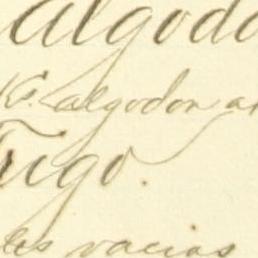 algodo
K. algodon a
Trigo.
les vacias